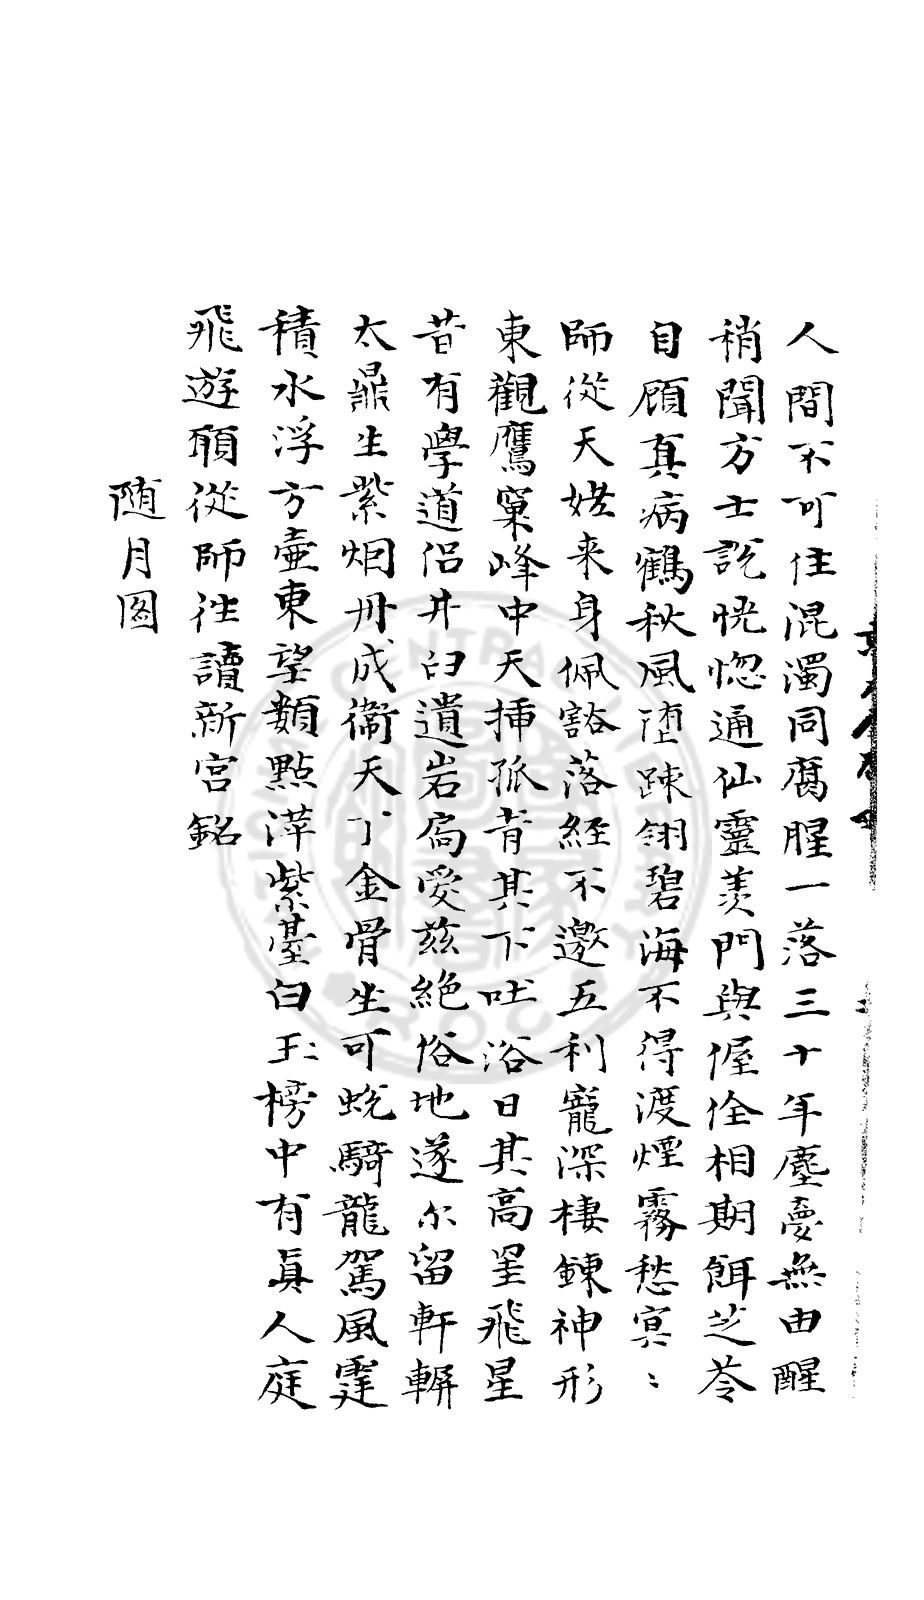 人間不可住混濁同腐腥一落三十年塵憂無由醒
稍聞方士説恍惚通仙靈羨門與偓佺相期餌芝苓
自顧真病鶴秋風墮踈翎碧海不得渡煙霧愁冥〻
師從天姥来身佩豁落経不邀五利寵深棲錬神形
東觀鷹窠峰中天揷孤青其下吐浴日其高罣飛星
昔有學道侣井臼遺岩扄愛兹絶俗地遂尒留軒輧
太鼎生紫烟丹成衞天丁金骨坐可蜕騎龍駕風霆
積水浮方壷東望類點萍紫臺白玉榜中有真人庭
飛遊願從師往讀新宫銘
随月圖
CENTRAL
R.O.C